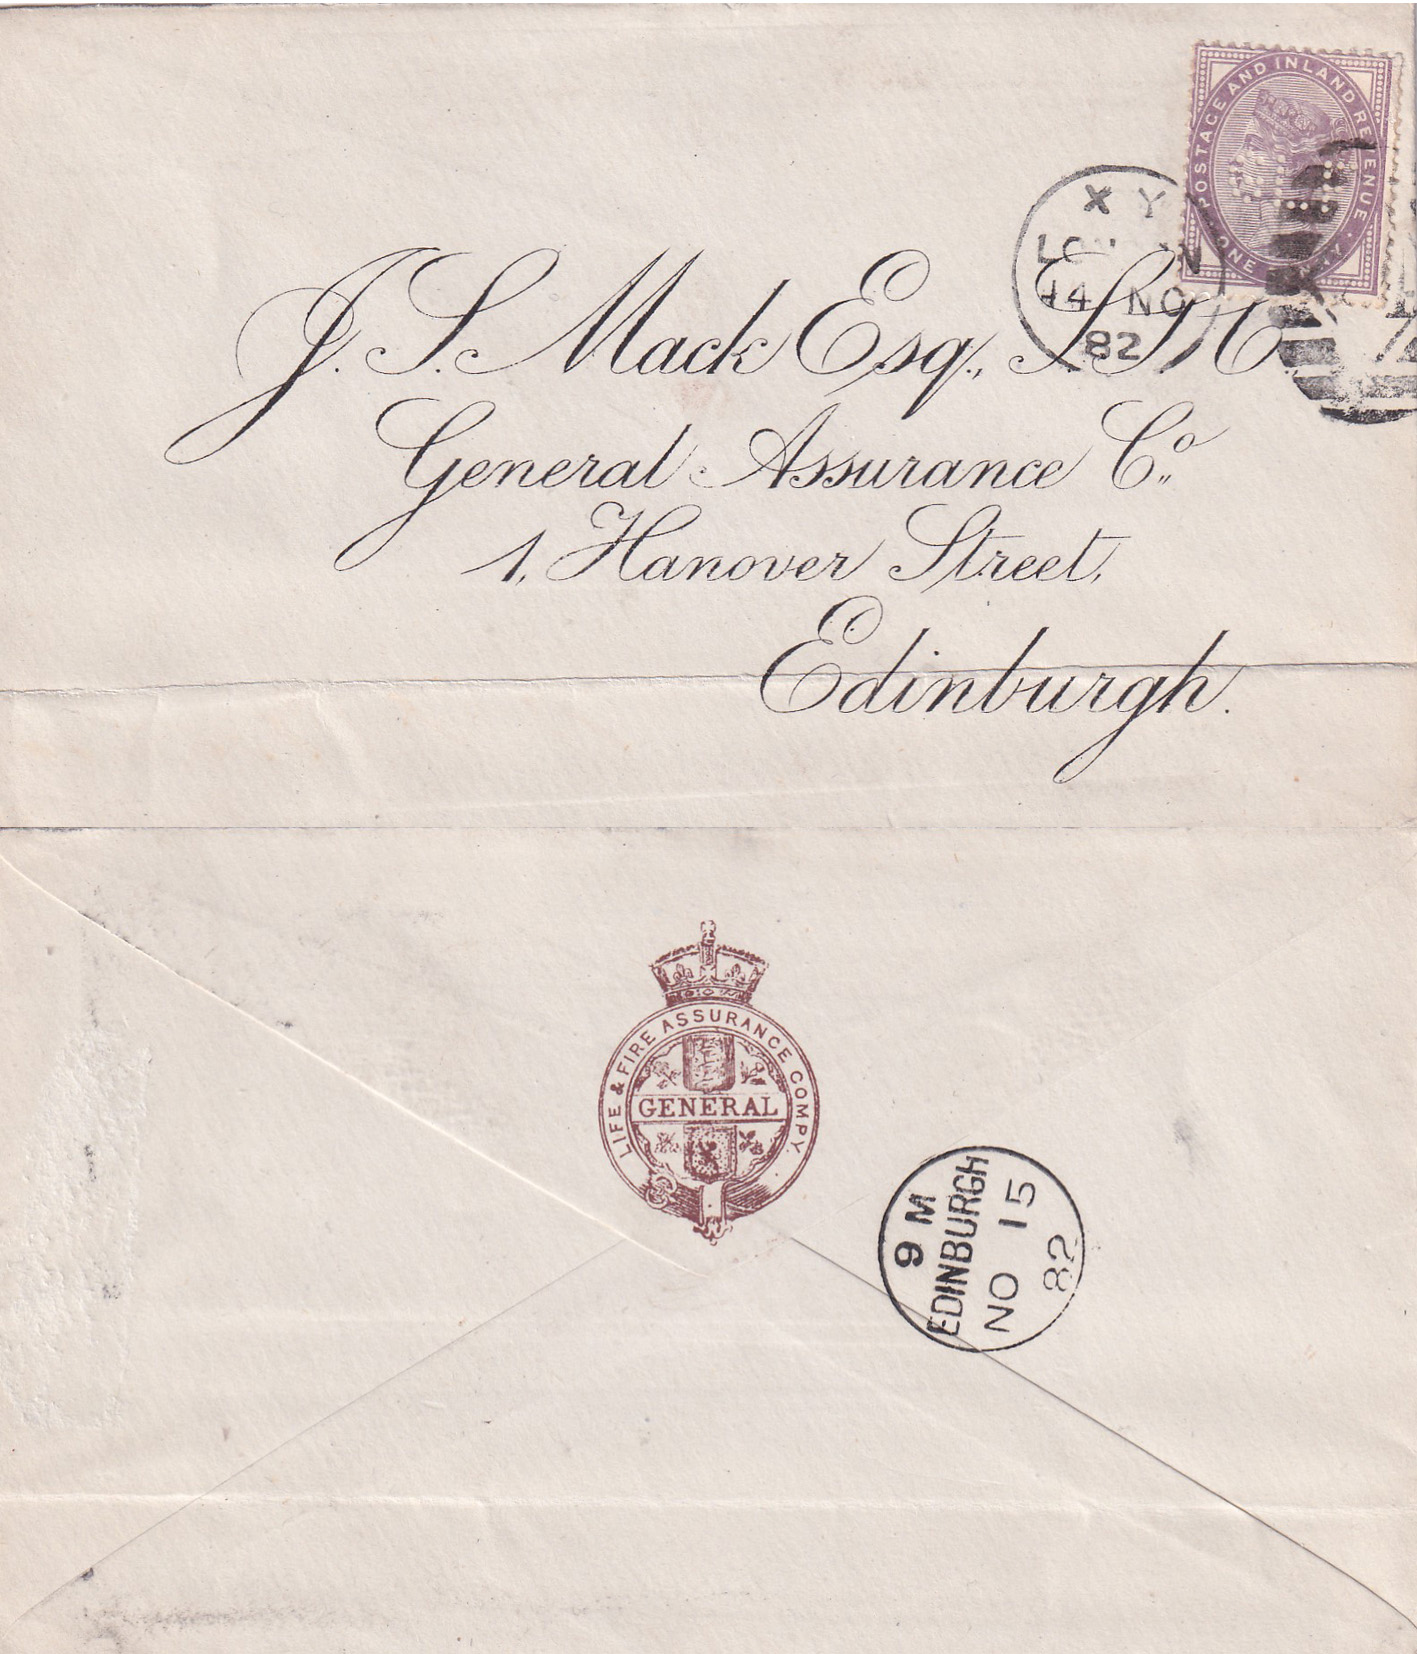 POSTAGE AND INLAND REVENUE
ONE PENNY
X Y
LONDON
14 NO
82
J. S. Mack Esq., S.S.C.
General Assurance Co.
1, Hanover Street,
Edinburgh.
LIFE & FIRE ASSURANCE COMPY
GENERAL
9 M
EDINBURGH
NO 15
82